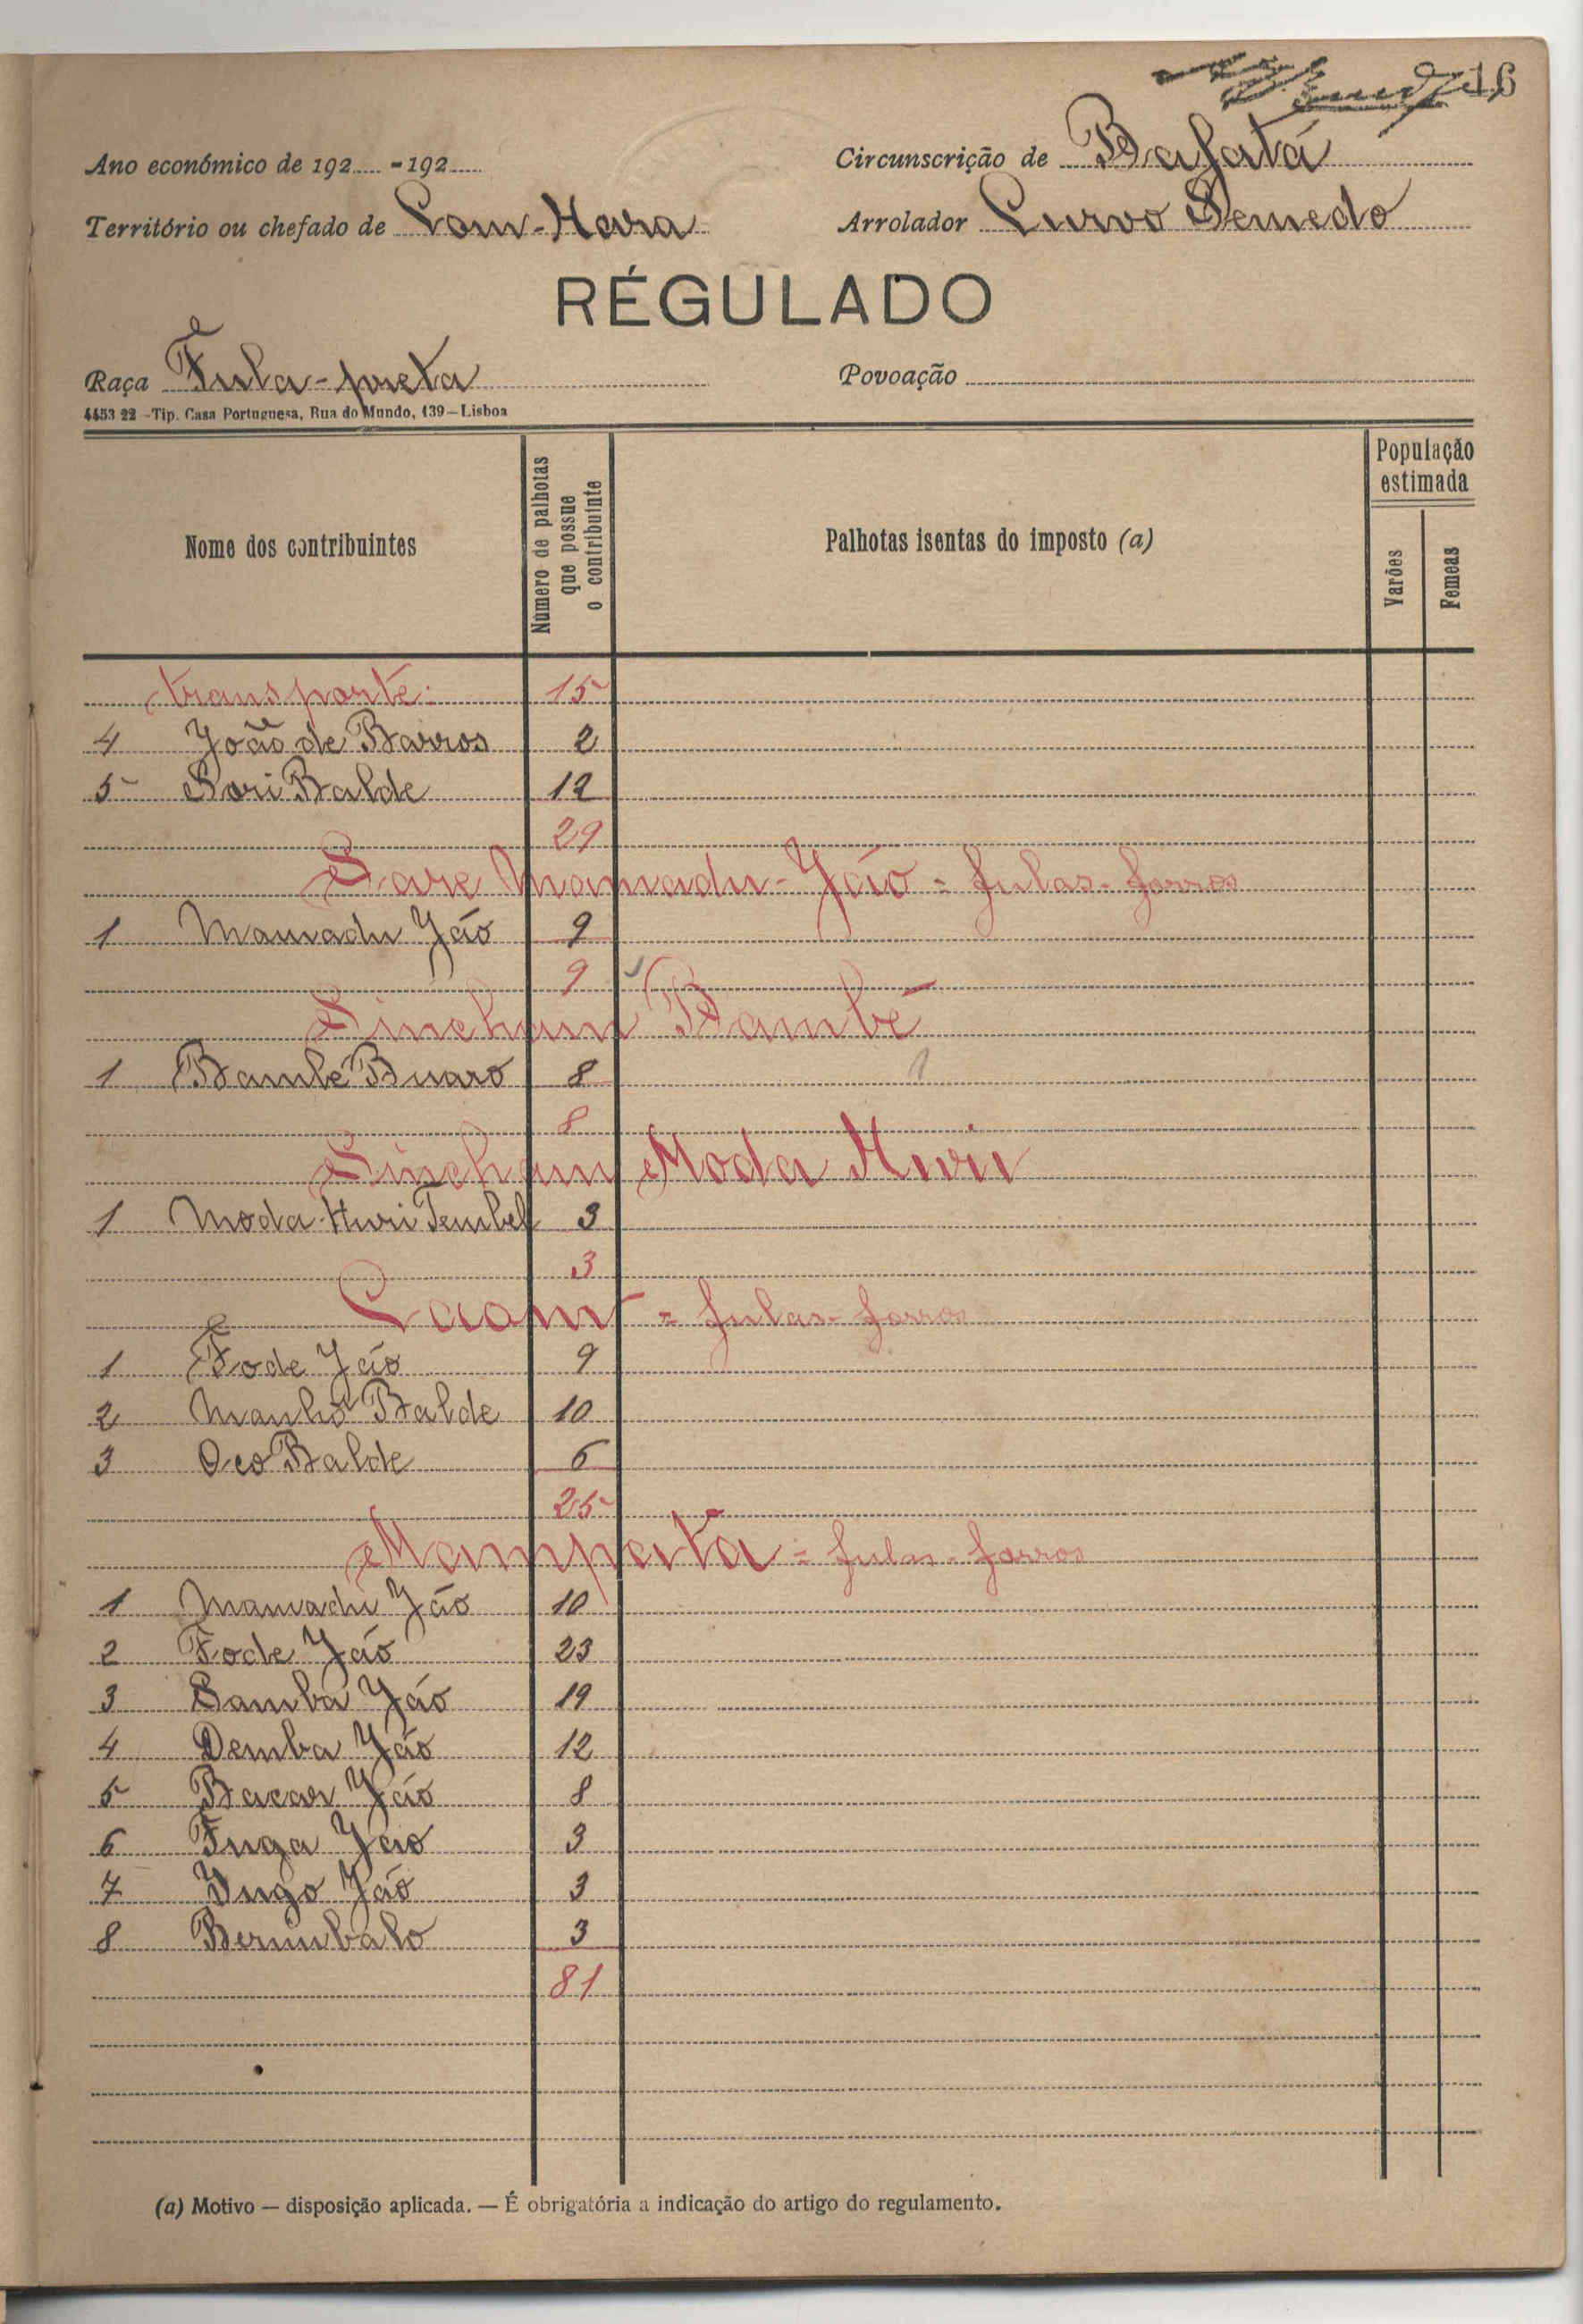 16
Ano económico de 192..... - 192.....
Circunscrição de Bafatá
Território ou chefado de
Arrolador Curvo Semedo
RÉGULADO
Raça Fula-preta
Povoação
4453 22 - Tip. Casa Portuguesa, Rua do Mundo, 139 - Lisboa
Nome dos contribuintes
Número de palhotas que possue o contribuinte
Palhotas isentas do imposto (a)
População estimada
Varões
Femeas
transporte: 15
4 João de Barros 2
5 Sori Balde 12
29
Sare Mamadu-Jáo = fulas-forros
1 Mamadu Jáo 9
9
Sincham Bambé
1 Bambé Buaro 8
8
Sincham Moda Huri
1 Moda Huri Tembel 3
3
= fulas-forros
1 Fode Jáo 9
2 Balde 10
3 Oco Balde 6
25
Mampata = fulas-forros
1 Mamadu Jáo 10
2 Fode Jáo 23
3 Samba Jáo 19
4 Demba Jáo 12
5 Bacar Jáo 8
6 Fuga Jáo 3
7 Jugo Jáo 3
8 Berimbalo 3
81
(a) Motivo — disposição aplicada. — É obrigatória a indicação do artigo do regulamento.